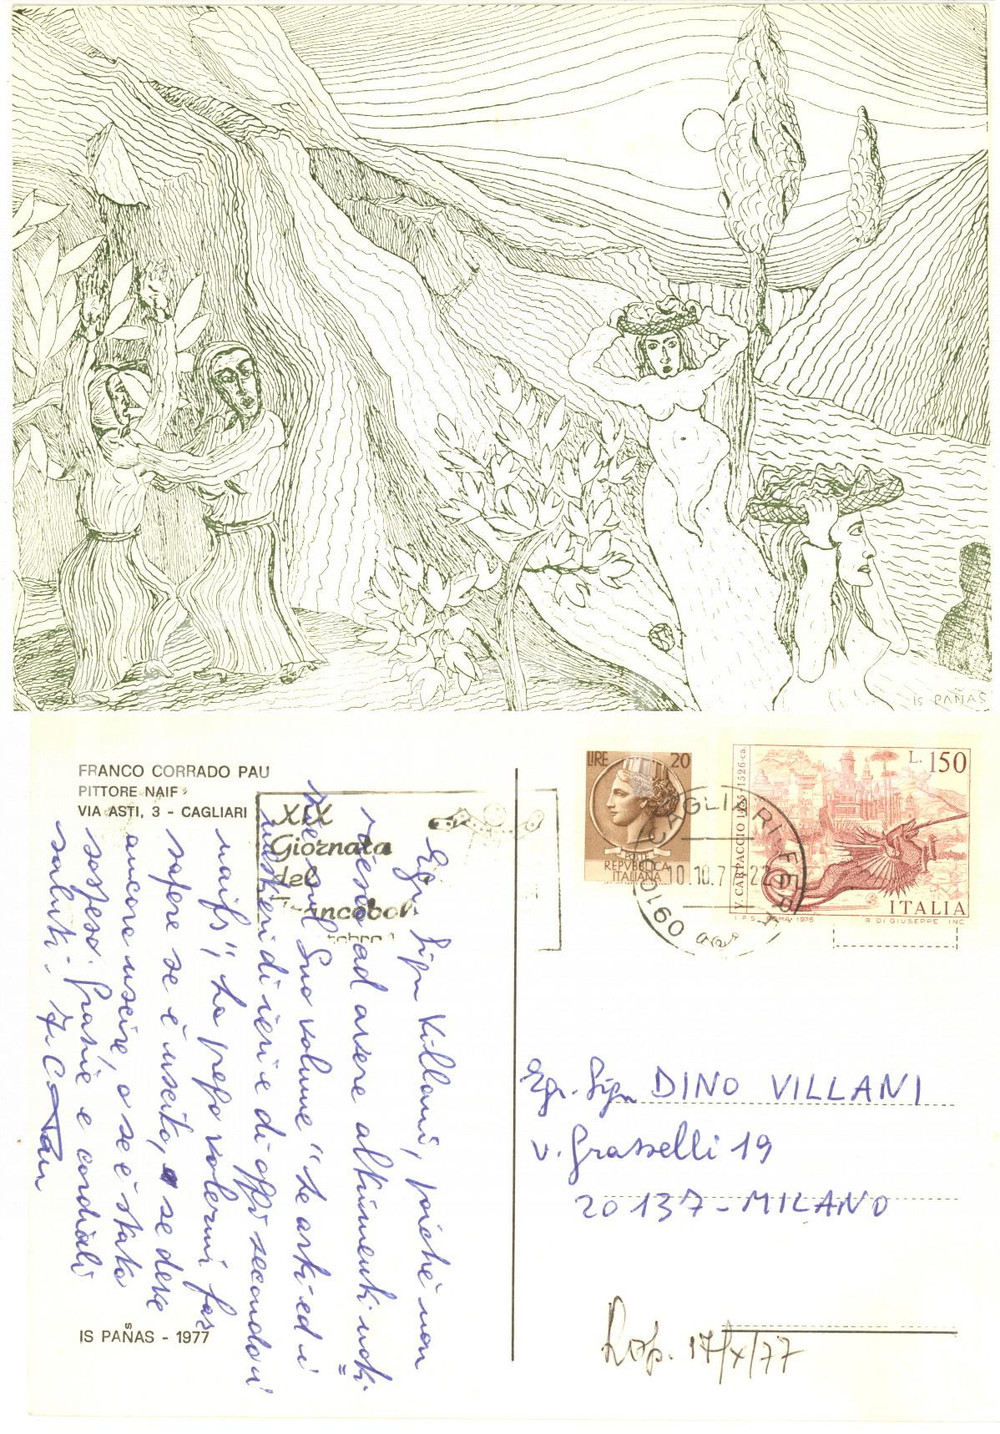 IS PAÑAS
FRANCO CORRADO PAU
PITTORE NAIF
VIA ASTI, 3 - CAGLIARI
XIX
Giornata
del
Francobol
LIRE 20
POSTE
REPVBBLICA
ITALIANA
CAGLIARI FERR
10.10.7
09100
V. CARPACCIO 1465-1526 ca.
L. 150
ITALIA
I.P.S. ROMA 1976
R. DI GIUSEPPE INC.
Egr. Sign Villani, poiché non
riesco ad avere altrimenti noti-
zie sul Suo volume "Le arti ed i
mestieri di ieri e di oggi secondo i
naifs", La prego volermi far
sapere se è uscito, o se deve
ancora uscire, o se è stato
sospeso. Grazie e cordiali
saluti. F. C. Pau
Egr. Sign DINO VILLANI
v. Grasselli 19
20137 - MILANO
Risp. 17/X/77
IS PAÑAS - 1977